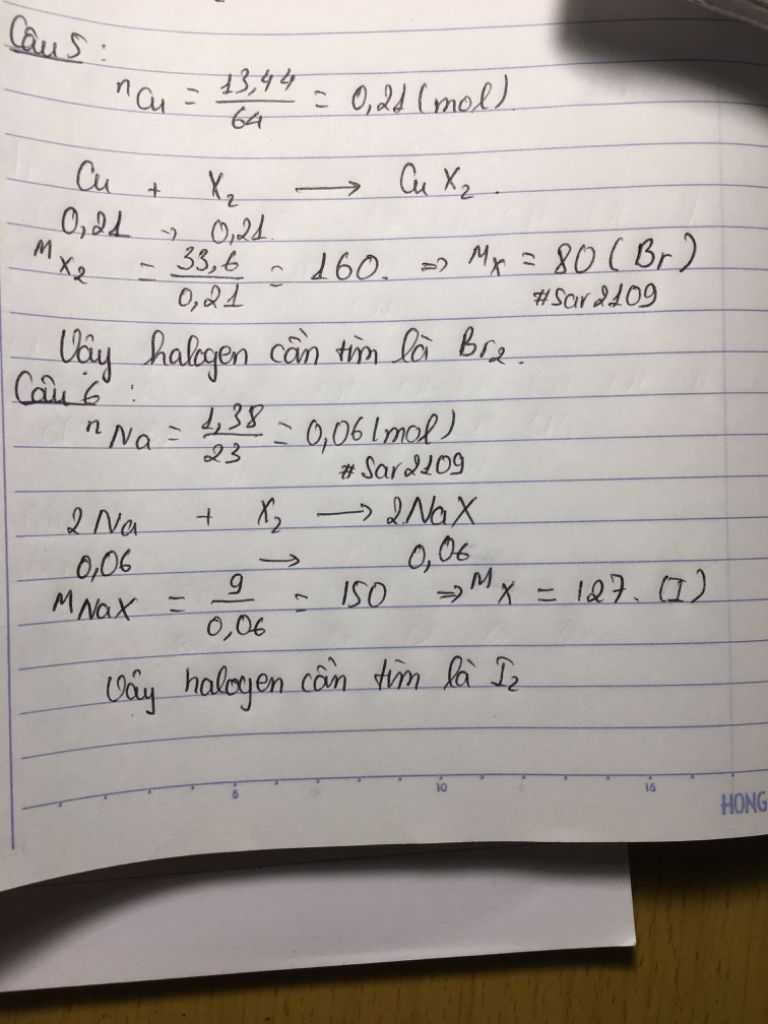 Câu 5 :
nCu = 13,44/64 = 0,21 (mol)
Cu + X₂ ⟶ CuX₂.
0,21 → 0,21
MX₂ = 33,6/0,21 = 160. ⇒ MX = 80 (Br)
#Sar2109
Vậy halogen cần tìm là Br₂.
Câu 6 :
nNa = 1,38/23 = 0,06 (mol)
#Sar2109
2Na + X₂ ⟶ 2NaX
0,06 ⟶ 0,06
MNaX = 9/0,06 = 150 ⇒ MX = 127. (I)
Vậy halogen cần tìm là I₂
5 10 15
HONG